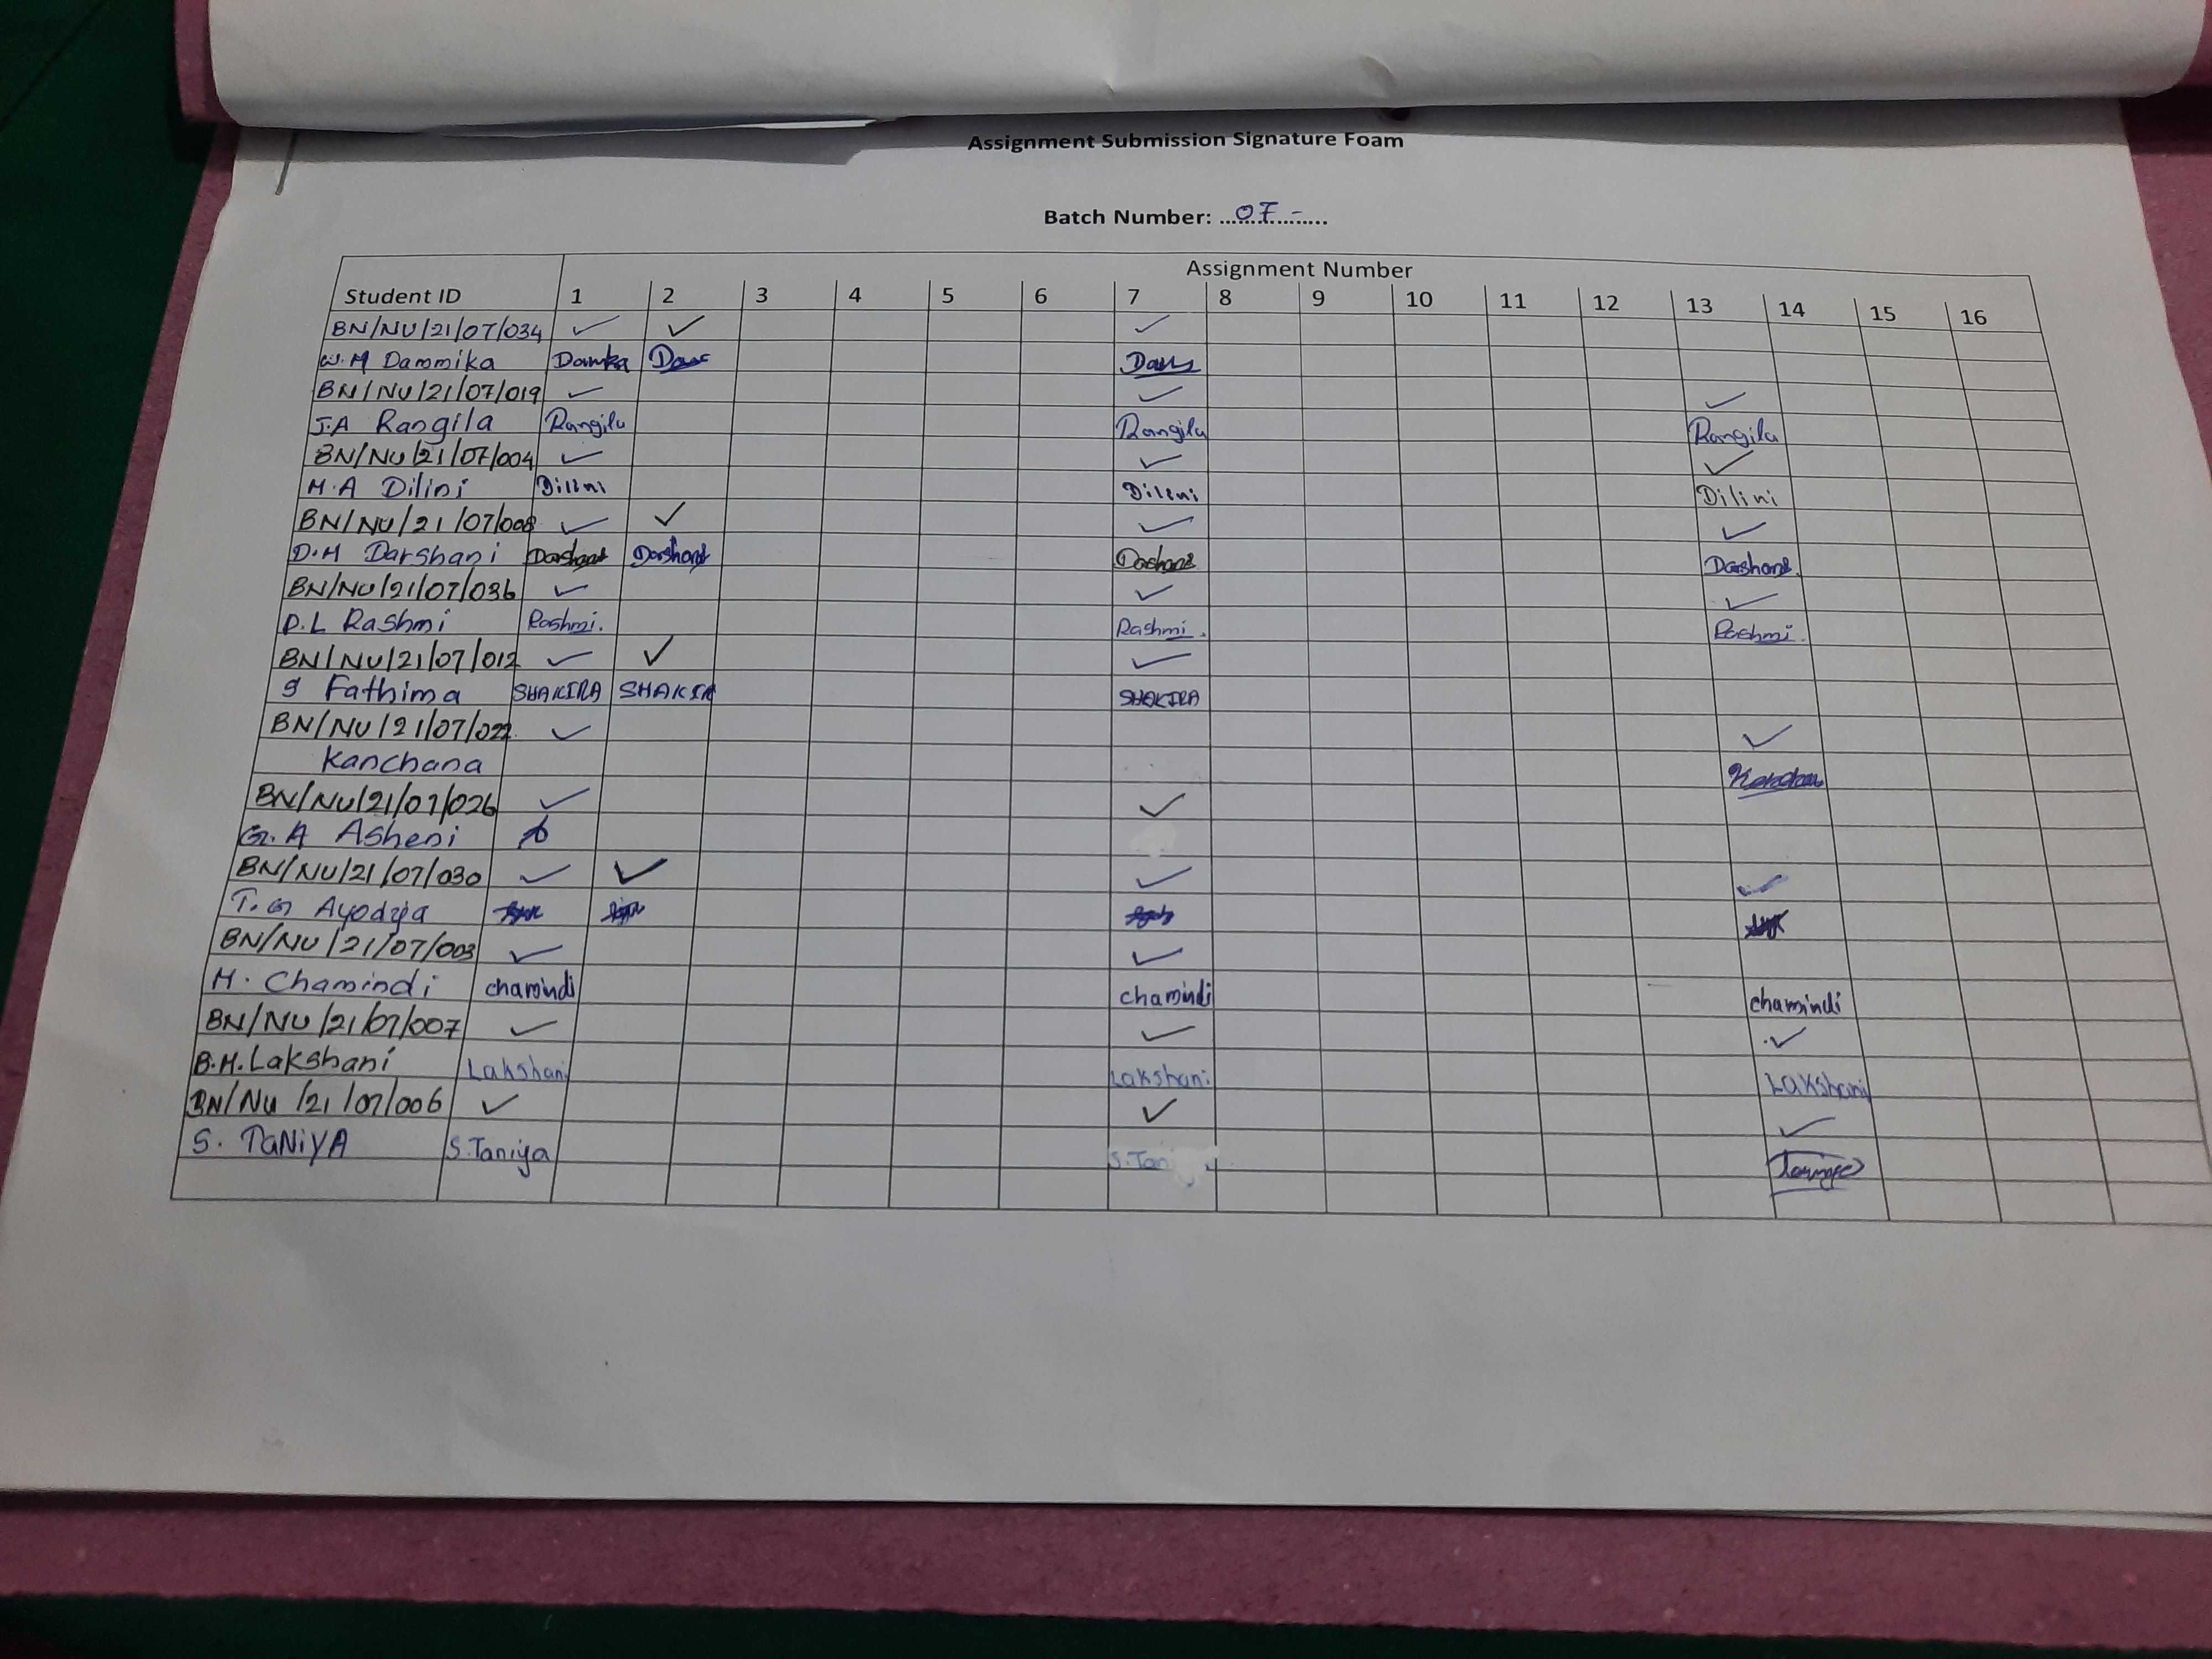 Assignment Submission Signature Foam
Batch Number: ....07-....
Assignment Number
Student ID 1 2 3 4 5 6 7 8 9 10 11 12 13 14 15 16
BN/NU/21/07/034 ✓ ✓ ✓
W.M Dammika Damka
BN/NU/21/07/019 ✓ ✓ ✓
J.A Rangila Rangila Rangila Rangila
BN/NU/21/07/004 ✓ ✓ ✓
M.A Dilini Dilini Dilini Dilini
BN/NU/21/07/008 ✓ ✓ ✓ ✓
D.M Darshani Darshani Darshani Darshani Darshani.
BN/NU/21/07/036 ✓ ✓ ✓
D.L Rashmi Rashmi. Rashmi. Rashmi.
BN/NU/21/07/012 ✓ ✓ ✓
Fathima SHAKIRA SHAKIR SHAKIRA
BN/NU/21/07/022 ✓ ✓
Kanchana
BN/NU/21/07/026 ✓ ✓
G.A Asheni
BN/NU/21/07/030 ✓ ✓ ✓ ✓
T.G Ayodya
BN/NU/21/07/003 ✓ ✓
H. Chamindi chamindi chamindi chamindi
BN/NU/21/07/007 ✓ ✓ ✓
B.H.Lakshani Lakshani Lakshani Lakshani
BN/NU/21/07/006 ✓ ✓ ✓
S. TaNiYA S.Taniya S.Tan